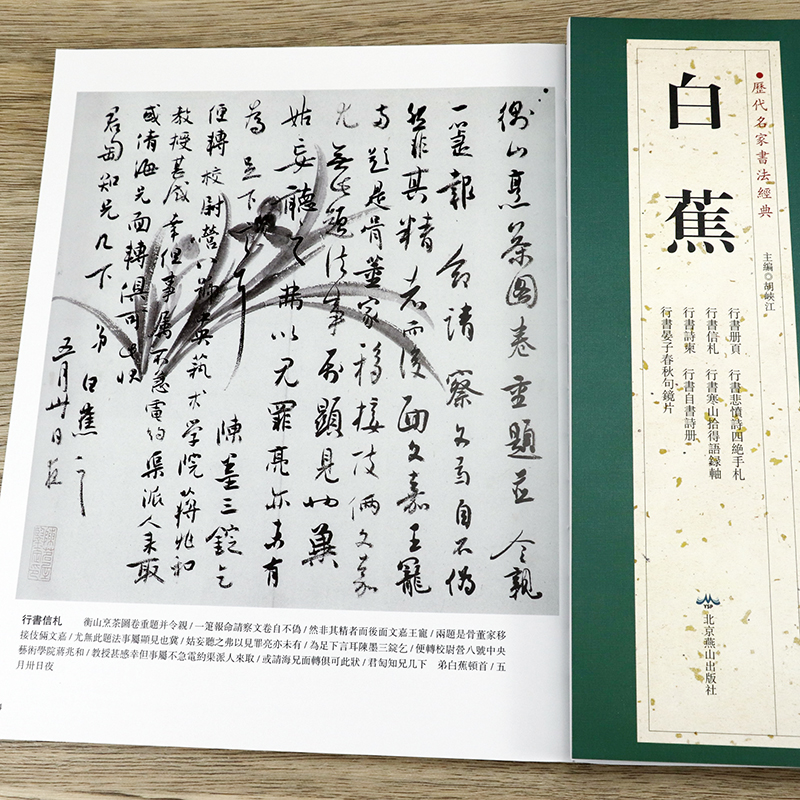 衡山烹茶圖卷重題并 令親
一箑報 命請察文卷自不偽
然非其精者而後面文嘉王寵
兩題是骨董家移接伎倆文嘉
尤無此題法事屬顯見也冀
姑妄聽之弗以見罪亮亦未有
為足下言耳 陳墨三錠乞
便轉校尉營八號中央藝術学院蔣兆和
教授甚感幸但事屬不急電約渠派人来取
或請海兄面轉俱可此狀
君匋知兄几下 弟白蕉頓首
五月卅日夜
行書信札 衡山烹茶圖卷重題并令親/一箑報命請察文卷自不偽/然非其精者而後面文嘉王寵/兩題是骨董家移
接伎倆文嘉/尤無此題法事屬顯見也冀/姑妄聽之弗以見罪亮亦未有/為足下言耳陳墨三錠乞/便轉校尉營八號中央
藝術學院蔣兆和/教授甚感幸但事屬不急電約渠派人來取/或請海兄面轉俱可此狀/君匋知兄几下 弟白蕉頓首/五
月卅日夜
歷代名家書法經典
白蕉
主編◎胡峽江
行書册頁 行書悲憤詩四絶手札
行書信札 行書寒山拾得語録軸
行書詩柬 行書自書詩册
行書晏子春秋句鏡片
YSP
北京燕山出版社